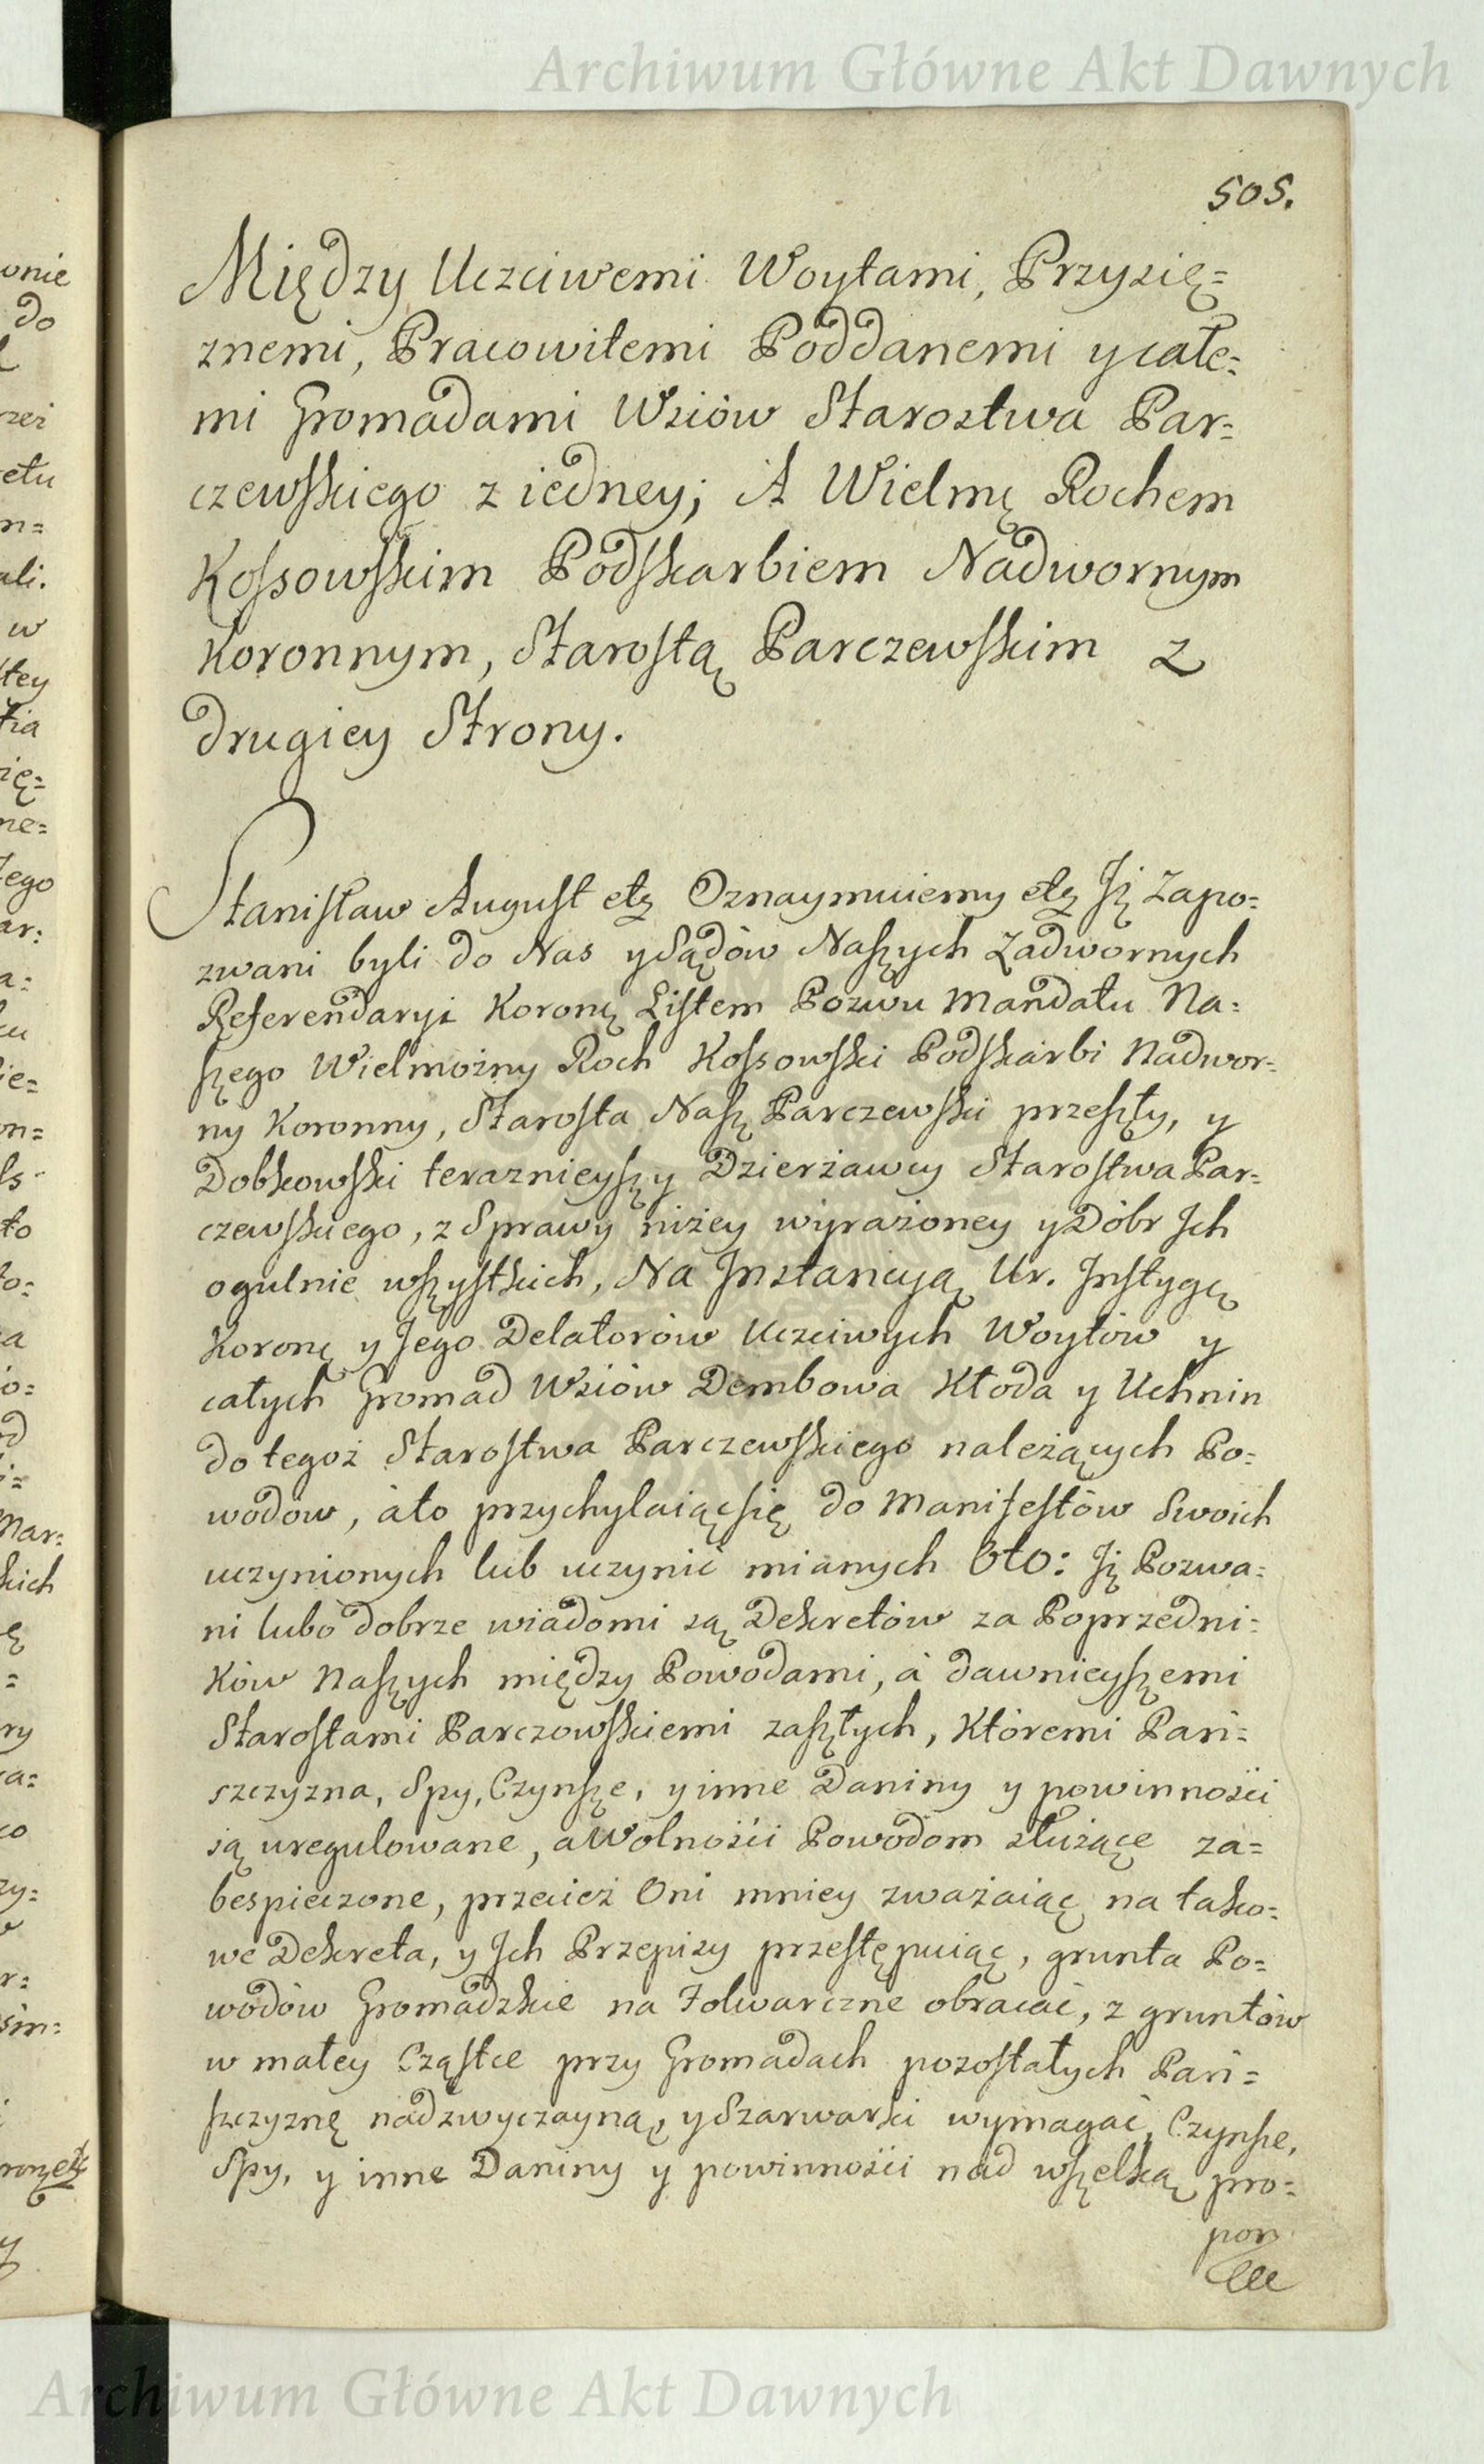 Archiwum Główne Akt Dawnych
505.
Między Uczciwemi Woytami, Przysię=
znemi, Pracowitemi Poddanemi y całe=
mi Gromadami Wsiów Starostwa Par=
czewskiego z iedney; A Wielmę Rochem
Kossowskim Podskarbiem Nadwornym
Koronnym, Starostą Parczewskim z
drugiey Strony.
Stanisław August etę Oznaymuiemy etę Iż Zapo=
zwani byli do Nas y Sądów Naszych Zadwornych
Referendaryi Koronę Listem Pozwu Mandatu Na=
szego Wielmożny Roch Kossowski Podskarbi Nadwor=
ny Koronny, Starosta Nasz Parczewski przeszły, y
Dobkowski teraznieyszy Dzierżawcy Starostwa Par=
czewskiego, z Sprawy niżey wyrażoney y Dóbr Ich
ogulnie wszystkich, Na Instancyą Ur. Instygę
Koronę y Jego Delatorów Uczciwych Woytów y
całych Gromad Wsiów Dembowa Kłoda y Uchnin
do tegoż Starostwa Parczewskiego należących Po=
wodów, áto przychylaiąc się do Manifestów Swoich
uczynionych lub uczynić mianych Oto: Iż Pozwa=
ni lubo dobrze wiadomi są Dekretów za Poprzedni=
ków Naszych między Powodami, á dawnieyszemi
Starostami Parczowskiemi zaszłych, Któremi Pań=
szczyzna, Spy, Czynsze, y inne Daniny y powinności
są uregulowane, a Wolności Powodom służące za=
bespieczone, przecież Oni mniey zważaiąc na tako=
we Dekreta, y Ich Przepisy przestępuiąc, grunta Po=
wodów Gromadzkie na Folwarczne obracać, z gruntów
w małey Cząstce przy Gromadach pozostałych Pań=
szczyznę nadzwyczayną, y Szarwarki wymagać, Czynsze,
Spy, y inne Daniny y powinności nad wszelką pro=
por
Archiwum Główne Akt Dawnych